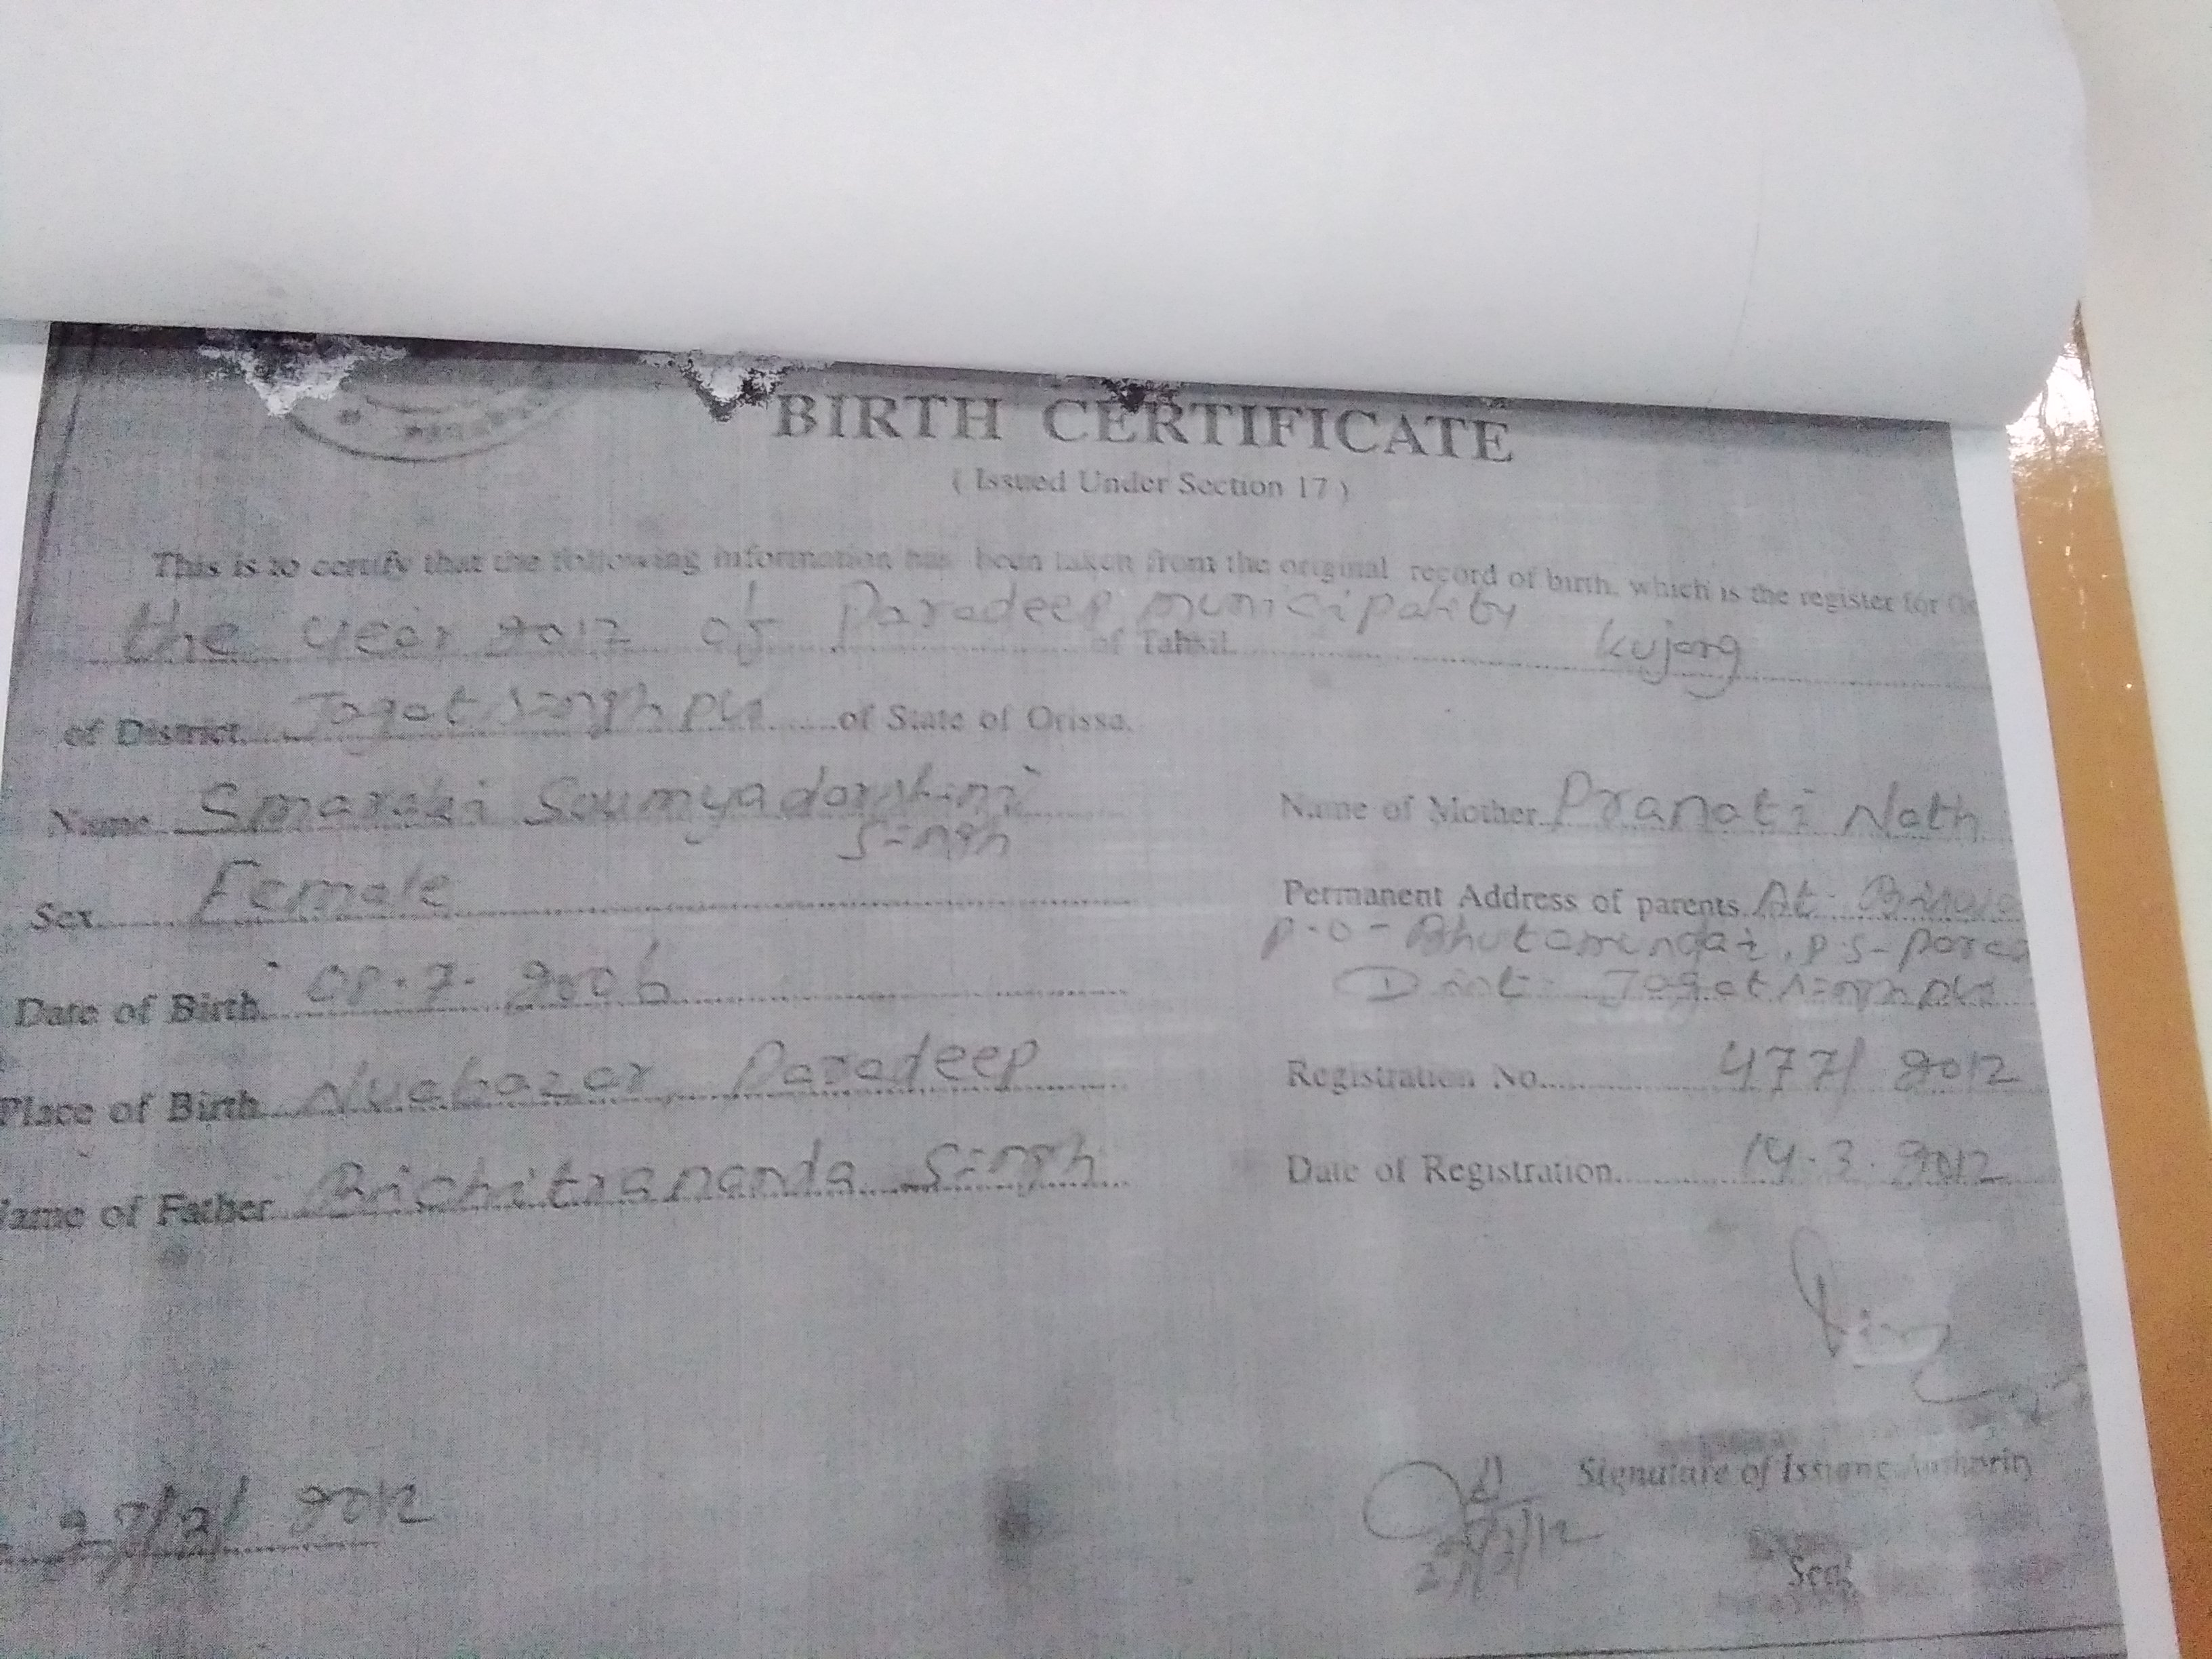 BIRTH CERTIFICATE
( Issued Under Section 17 )
This is to certify that the following information has been taken from the original record of birth, which is the register for
the year 2012 of Paradeep municipality of Tahsil kujang
of District Jagatsinghpur of State of Orissa.
Name Soumyadarshini
Singh
Name of Mother Pranati Nath
Sex Female
Permanent Address of parents At-
P.O - Bhutamundai, P.S-
Dist- Jagatsinghpur
Date of Birth 08.7.2006
Place of Birth Nuabazar Paradeep
Registration No. 477/2012
Name of Father Bichitrananda Singh
Date of Registration 14.3.2012
Signature of Issiong Authority
27/3/2012
27/3/12
Seal